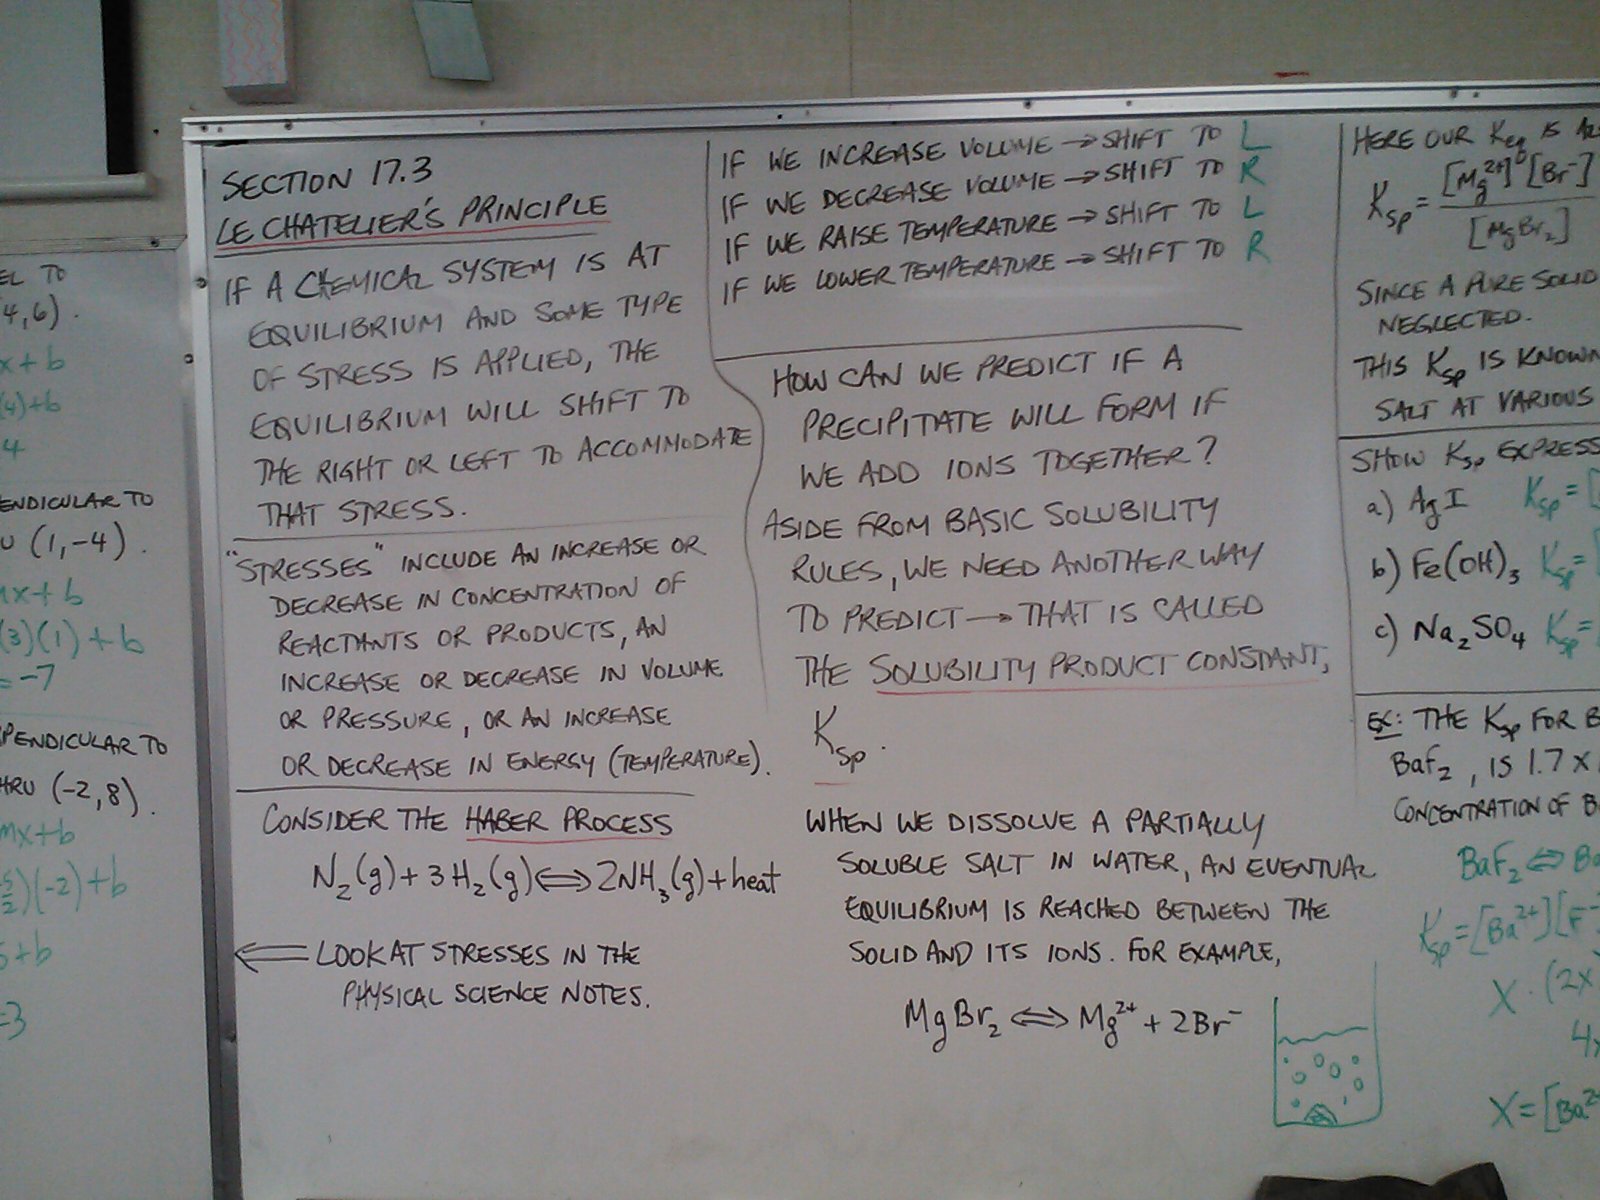 EL TO
4,6).
x+b
(4)+b
4
ENDICULAR TO
U (1,-4).
mx+b
(3)(1)+b
=-7
PENDICULAR TO
HRU (-2,8).
mx+b
)(-2)+b
5+b
-3
SECTION 17.3
LE CHATELIER'S PRINCIPLE
IF A CHEMICAL SYSTEM IS AT
EQUILIBRIUM AND SOME TYPE
OF STRESS IS APPLIED, THE
EQUILIBRIUM WILL SHIFT TO
THE RIGHT OR LEFT TO ACCOMMODATE
THAT STRESS.
"STRESSES" INCLUDE AN INCREASE OR
DECREASE IN CONCENTRATION OF
REACTANTS OR PRODUCTS, AN
INCREASE OR DECREASE IN VOLUME
OR PRESSURE, OR AN INCREASE
OR DECREASE IN ENERGY (TEMPERATURE).
CONSIDER THE HABER PROCESS
N₂(g)+3H₂(g)⇔2NH₃(g)+heat
⇐ LOOK AT STRESSES IN THE
PHYSICAL SCIENCE NOTES.
IF WE INCREASE VOLUME → SHIFT TO L
IF WE DECREASE VOLUME → SHIFT TO R
IF WE RAISE TEMPERATURE → SHIFT TO L
IF WE LOWER TEMPERATURE → SHIFT TO R
HOW CAN WE PREDICT IF A
PRECIPITATE WILL FORM IF
WE ADD IONS TOGETHER?
ASIDE FROM BASIC SOLUBILITY
RULES, WE NEED ANOTHER WAY
TO PREDICT → THAT IS CALLED
THE SOLUBILITY PRODUCT CONSTANT,
Ksp.
WHEN WE DISSOLVE A PARTIALLY
SOLUBLE SALT IN WATER, AN EVENTUAL
EQUILIBRIUM IS REACHED BETWEEN THE
SOLID AND ITS IONS. FOR EXAMPLE,
MgBr₂ ⇔ Mg²⁺ + 2Br⁻
HERE OUR Keq IS
Ksp = [Mg²⁺][Br⁻]
[MgBr₂]
SINCE A PURE SOLID
NEGLECTED.
THIS Ksp IS KNOWN
SALT AT VARIOUS
SHOW Ksp EXPRESS
a) AgI Ksp = [
b) Fe(OH)₃ Ksp = [
c) Na₂SO₄ Ksp =
EX: THE Ksp FOR B
BaF₂, IS 1.7 x
CONCENTRATION OF B
BaF₂ ⇔ Ba
Ksp = [Ba²⁺][F⁻
X · (2x
4x
X = [Ba²⁺